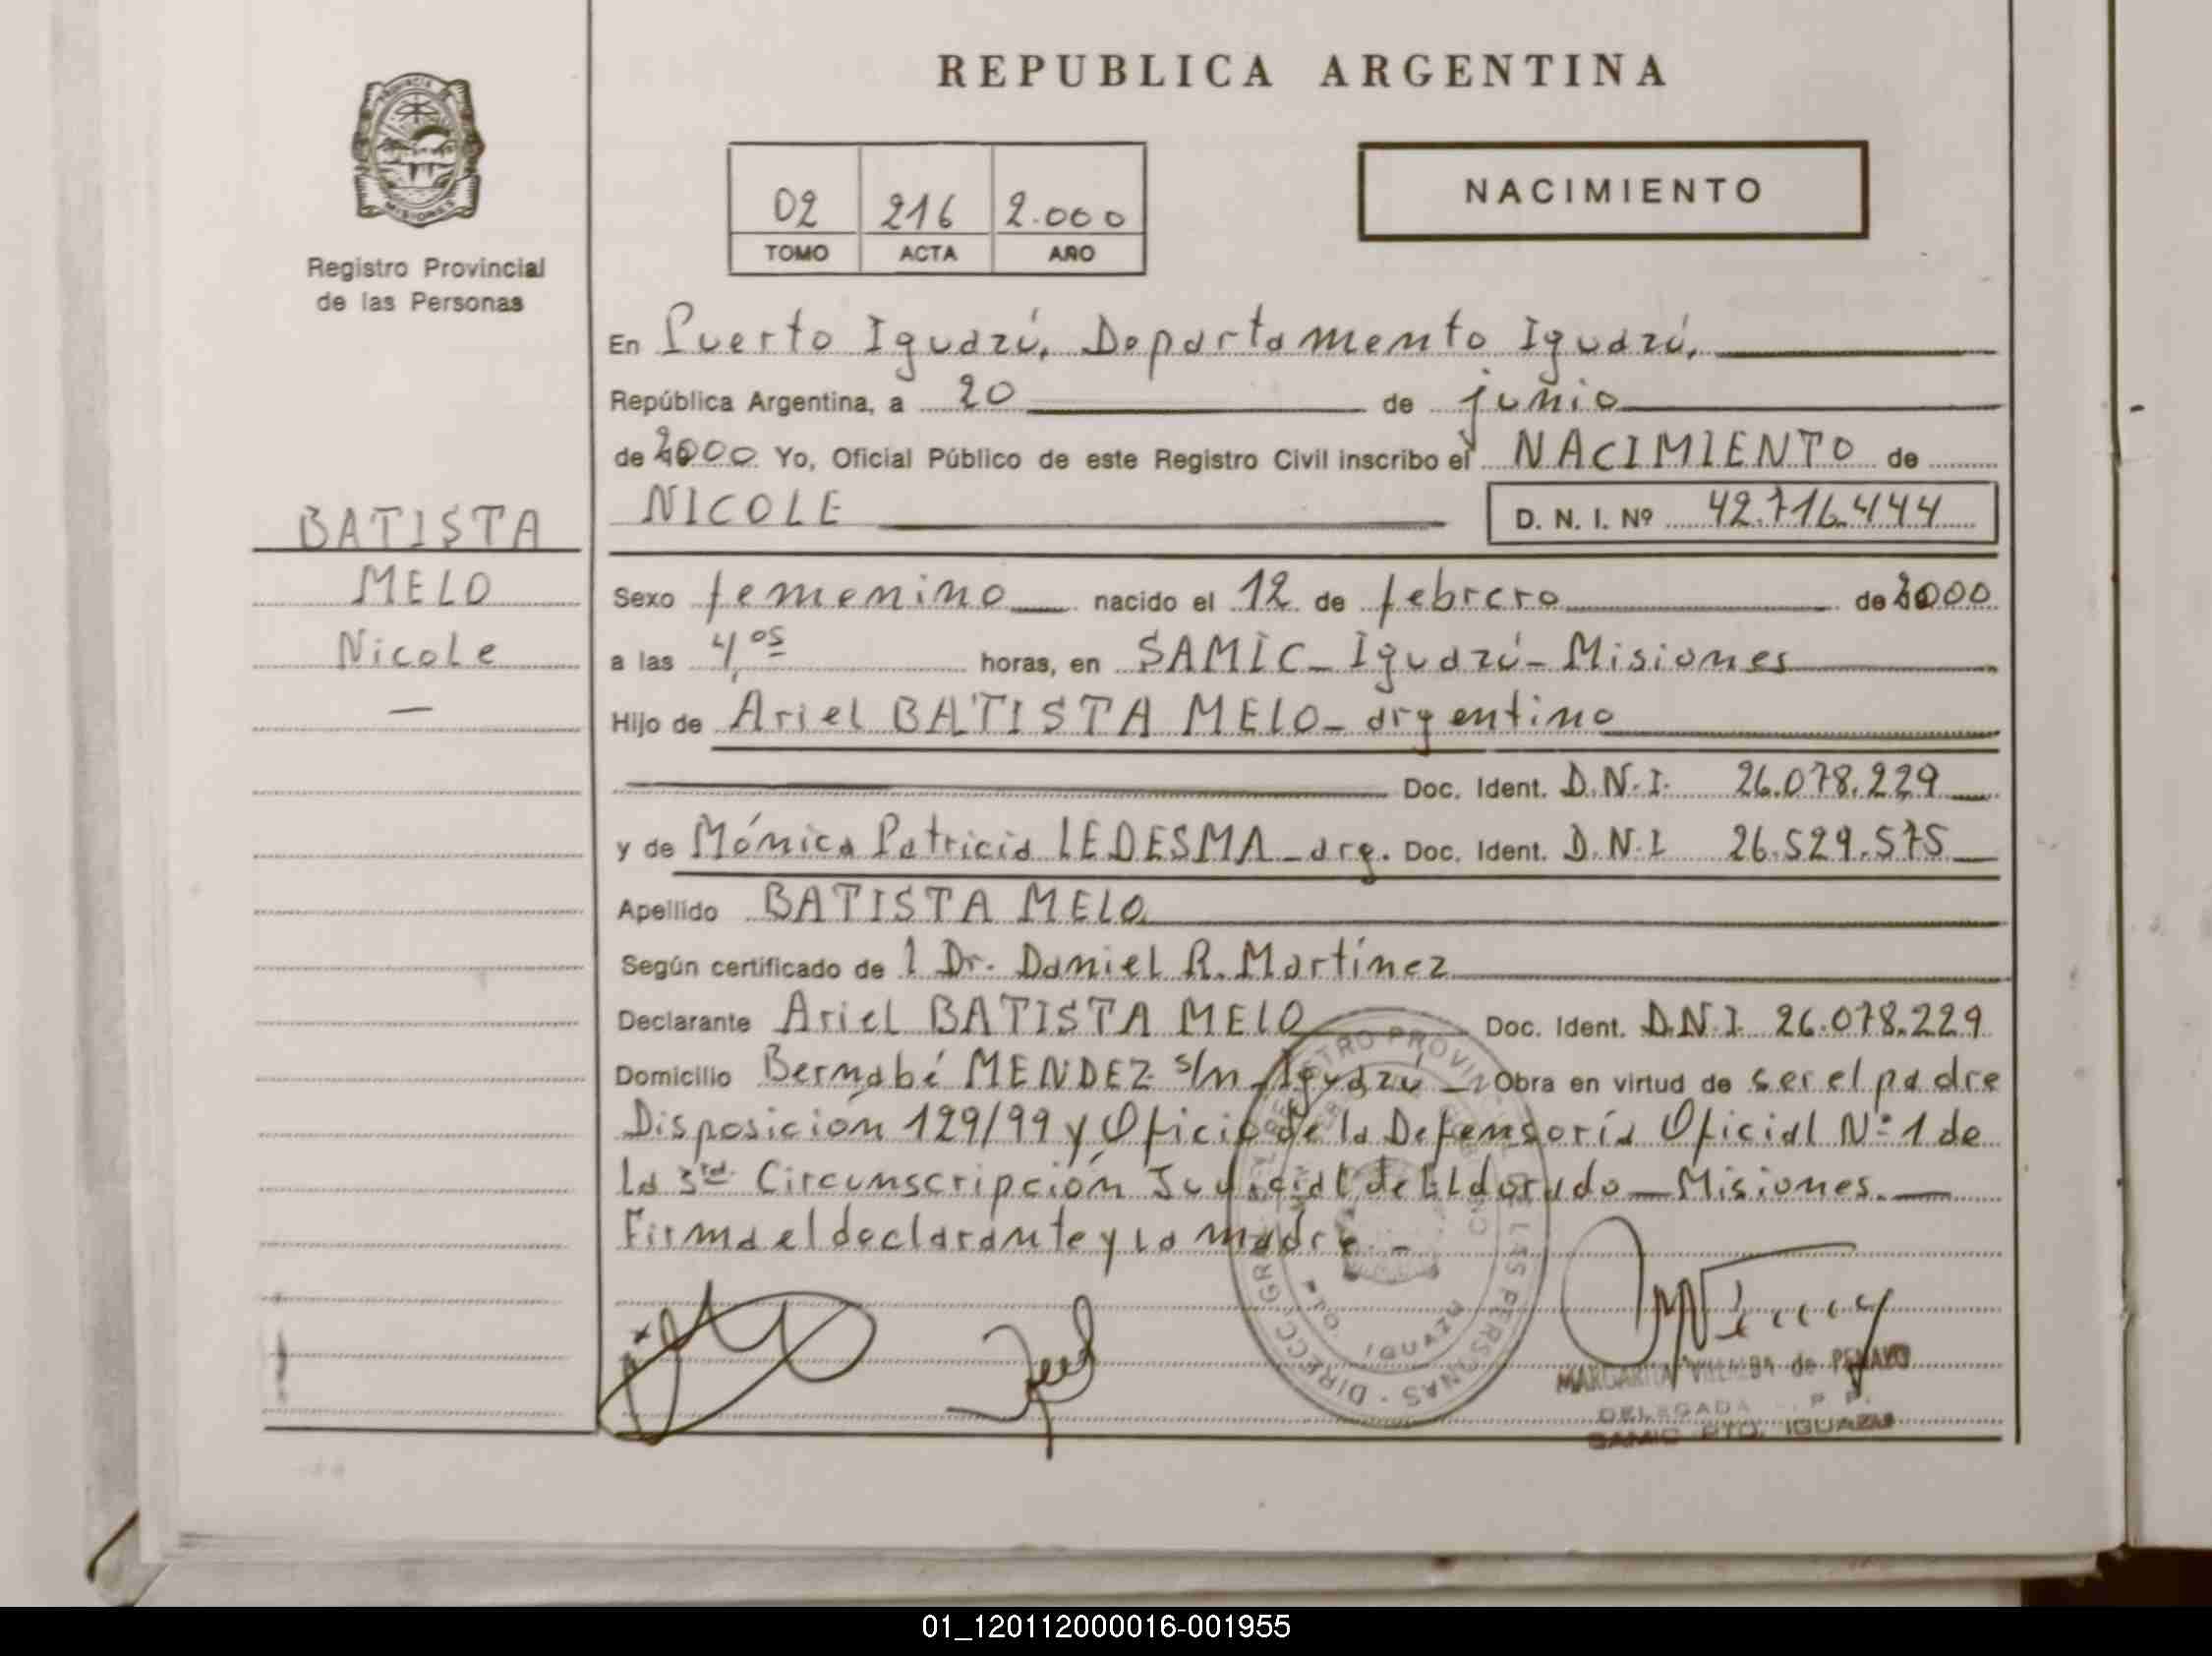 REPUBLICA ARGENTINA
PROVINCIA DE
MISIONES
Registro Provincial
de las Personas
02 216 2.000
TOMO ACTA AÑO
NACIMIENTO
En Puerto Iguazú, Departamento Iguazú,
República Argentina, a 20 de junio
de 2000 Yo, Oficial Público de este Registro Civil inscribo el NACIMIENTO de
NICOLE D. N. I. Nº 42.716.444
BATISTA
MELO
Nicole
—
Sexo femenino nacido el 12 de febrero de 2000
a las 4,05 horas, en SAMIC - Iguazú - Misiones
Hijo de Ariel BATISTA MELO - argentino
Doc. Ident. D.N.I. 26.078.229
y de Mónica Patricia LEDESMA - arg. Doc. Ident. D.N.I 26.529.575
Apellido BATISTA MELO
Según certificado de l Dr. Daniel R. Martínez
Declarante Ariel BATISTA MELO Doc. Ident. D.N.I. 26.078.229
Domicilio Bernabé MENDEZ s/n Iguazú - Obra en virtud de ser el padre
Disposición 129/99 y Oficio de la Defensoría Oficial Nº 1 de
la 3ra Circunscripción Judicial de Eldorado - Misiones.
Firma el declarante y la madre. -
IGUAZU
MARGARITA VILLALBA de PENAYO
DELEGADA R. P. P.
SAMIC PTO. IGUAZU
01_120112000016-001955